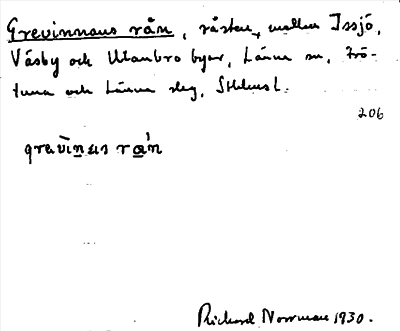 Grevinnans rån, råsten, mellan Issjö,
Väsby och Utanbro byar, Länna sn, Frö-
tuna och Länna slg, Sthlms l.
206
grevinas rån
Richard Norrman 1930.